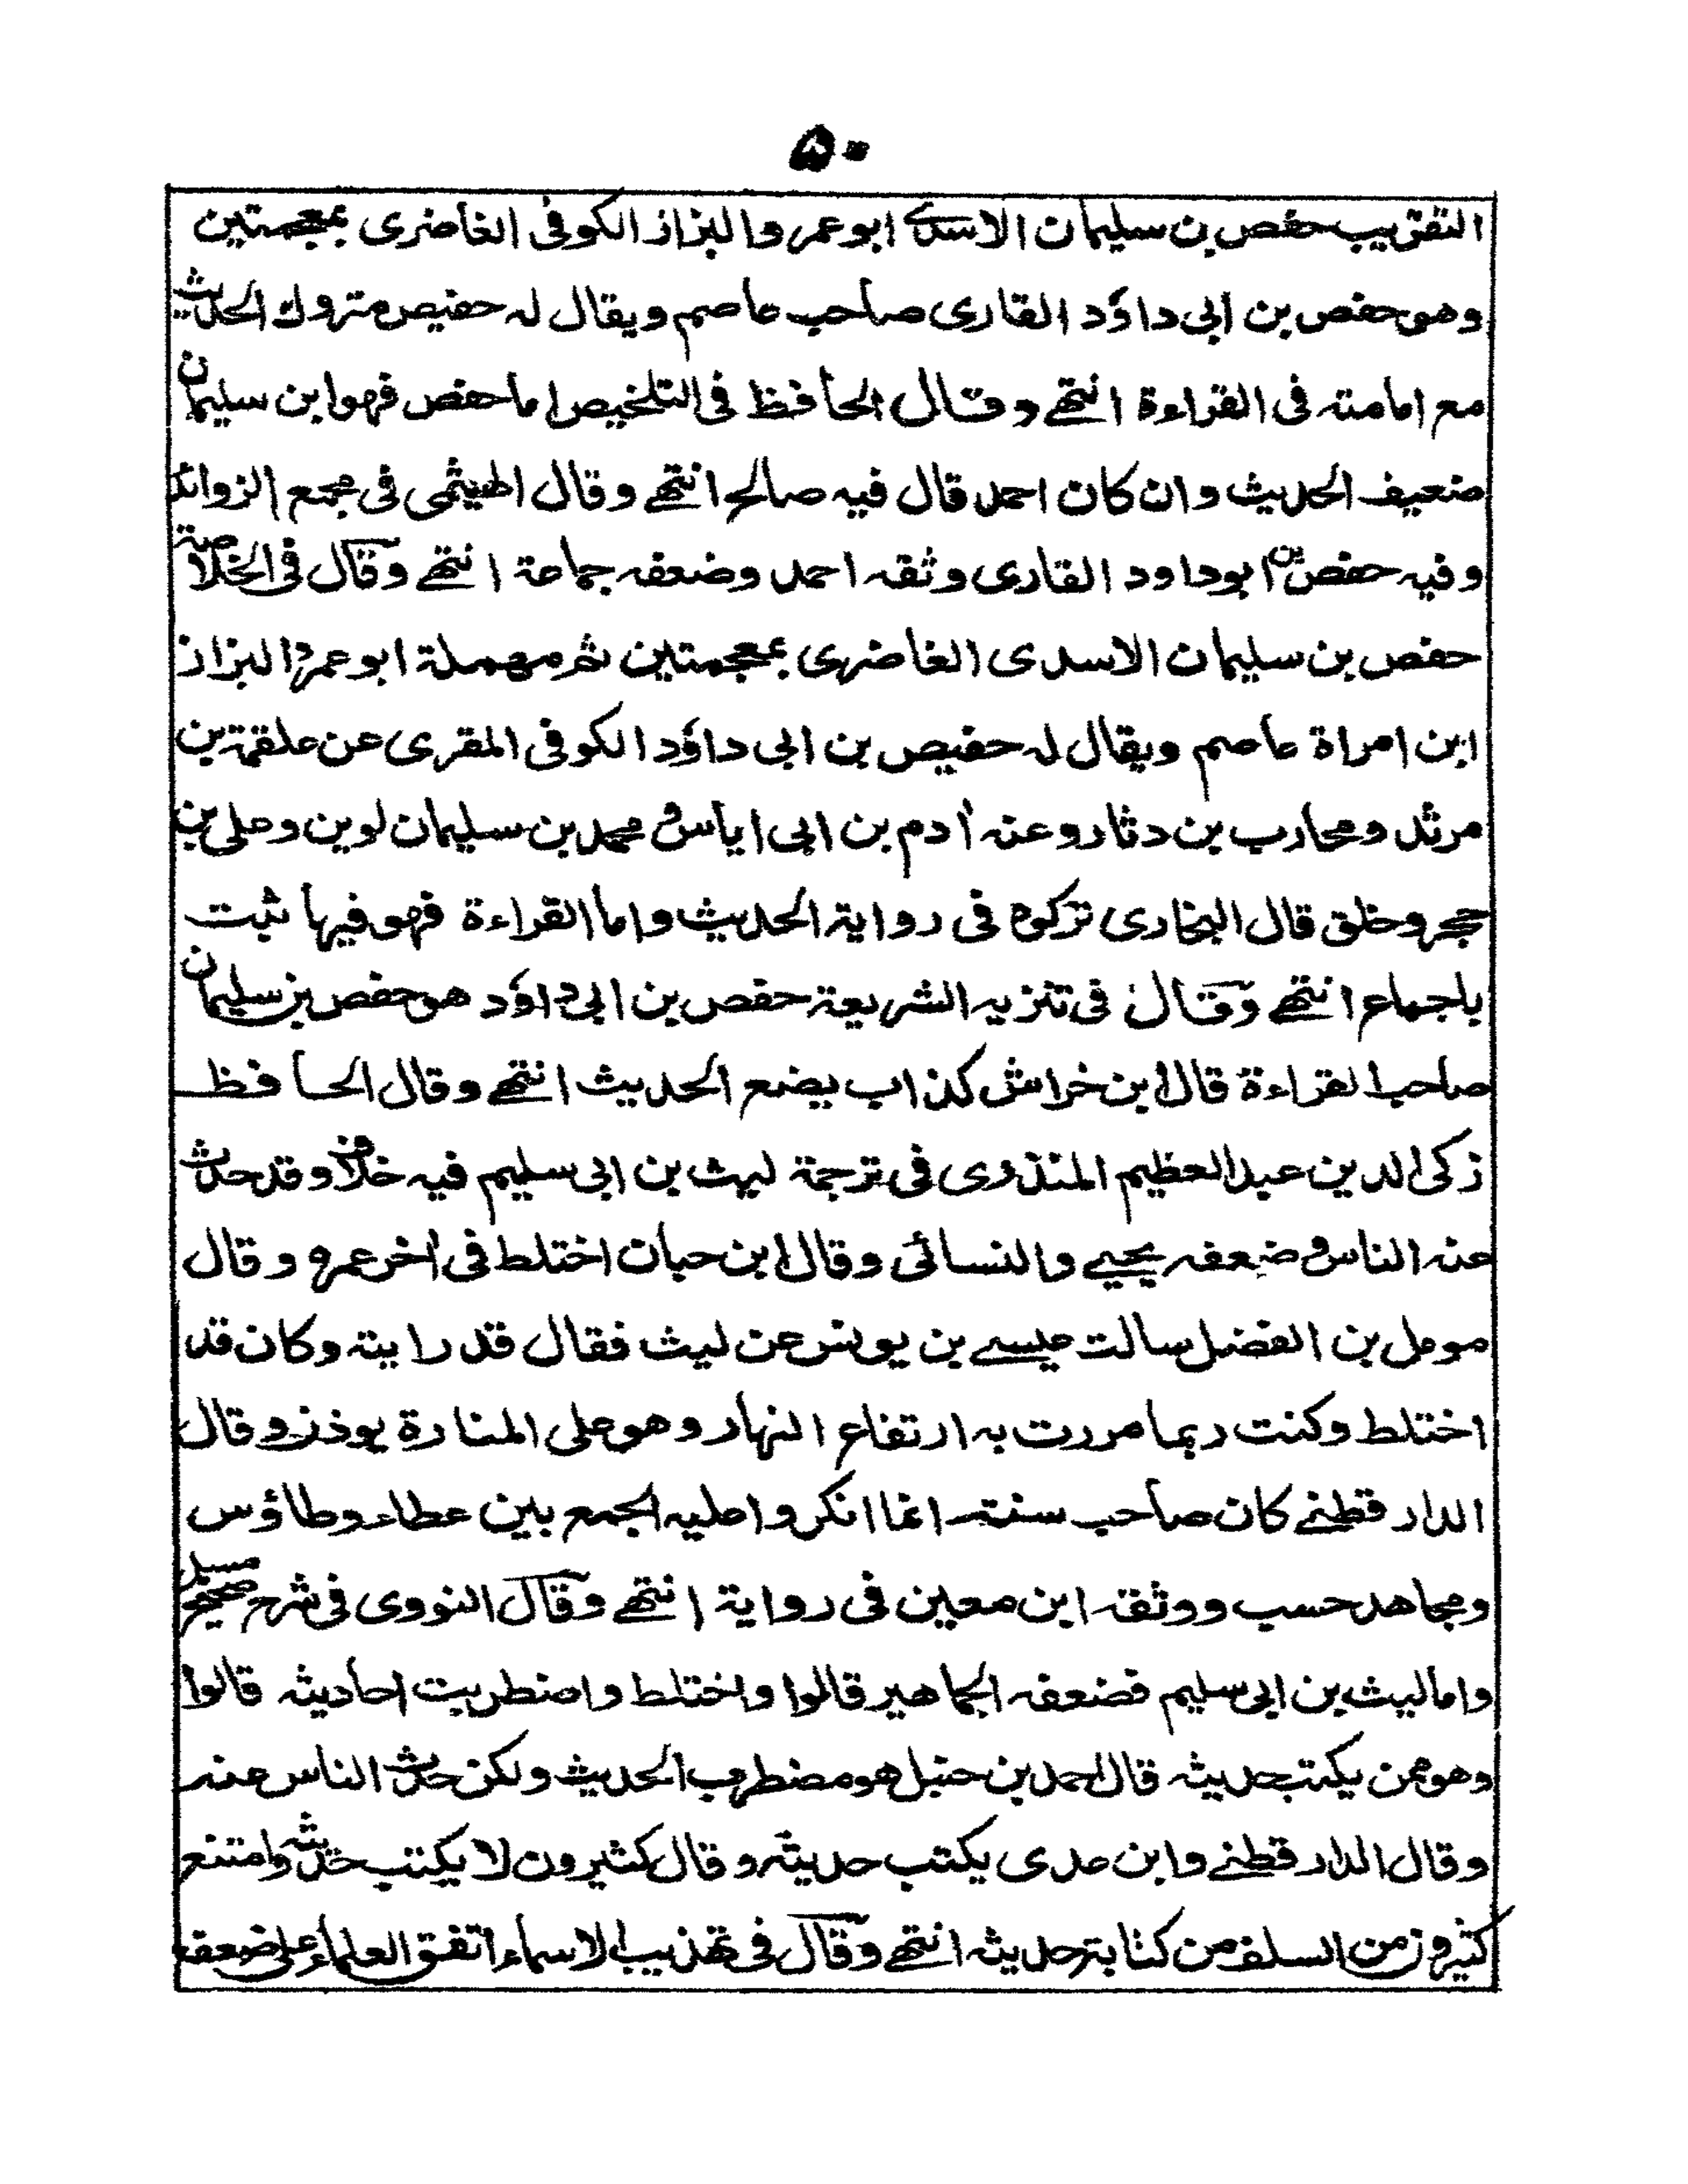 ۵۰
التقريب حفص بن سليمان الاسدے ابو عمر والبزاز الكوفى الغاضرى بمعجمتين
وهو حفص بن ابى داؤد القارى صاحب عاصم ويقال له حفيص متروك الحديث
مع امامته فى القراءة انتهے وقال الحافظ فى التلخيص اما حفص فهو ابن سليمان
ضعيف الحديث وان كان احمد قال فيه صالح انتهے وقال الهيثمى فى مجمع الزوائد
وفيه حفص بن ابو داود القارى وثقه احمد وضعفه جماعة انتهے وقال فى الخلاصة
حفص بن سليمان الاسدى الغاضرى بمعجمتين ثم مهملة ابو عمرو البزاز
ابن امراة عاصم ويقال له حفيص بن ابى داؤد الكوفى المقرى عن علقمة بن
مرثد ومحارب بن دثار وعنه اٰدم بن ابى اياس ومحمد بن سليمان لوين وعلى بن
حجر وخلق قال البخارى تركوه فى رواية الحديث واما القراءة فهو فيها ثبت
باجماع انتهے وقال فى تنزيه الشريعة حفص بن ابى داؤد هو حفص بن سليمان
صاحب القراءة قال ابن خراش كذاب يضع الحديث انتهے وقال الحافظ
زكى الدين عبد العظيم المنذرى فى ترجمة ليث بن ابى سليم فيه خلاف وقد حدث
عنه الناس وضعفه يحيے والنسائى وقال ابن حبان اختلط فى اٰخر عمره وقال
مومل بن الفضل سالت عيسے بن يونس عن ليث فقال قد رايته وكان قد
اختلط وكنت ربما مررت به ارتفاع النهار وهو على المنارة يوذن وقال
الدارقطنے كان صاحب سنة انما انكروا عليه الجمع بين عطاء وطاؤس
ومجاهد حسب ووثقه ابن معين فى رواية انتهے وقال النووى فى شرح صحيح مسلم
واما ليث بن ابى سليم فضعفه الجماهير قالوا واختلط واضطربت احاديثه قالوا
وهو ممن يكتب حديثه قال احمد بن حنبل هو مضطرب الحديث ولكن حدث الناس عنه
وقال الدارقطنے وابن عدى يكتب حديثه وقال كثيرون لا يكتب حديثه وامتنع
كثيرون من السلف من كتابة حديثه انتهے وقال فى تهذيب الاسماء اتفق العلماء على ضعفه